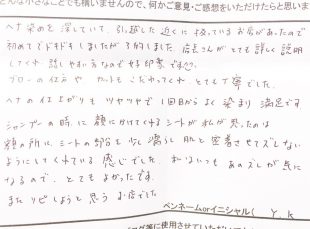 どんな小さなことでも構いませんので、何かご意見・ご感想をいただけたらと思いま
ヘナ染めを 探していて、引っ越した 近くに 扱っている お店があったので
初めてで ドキドキしましたが 予約しました。店主さんが とても 詳しく 説明
してくれ 話しやすい 方なので 好印象です!!
ブローの仕方や カットも こだわってくれ とても 丁寧でした。
ヘナの 仕上がりも ツヤツヤで 1回目から よく 染まり 満足です
シャンプーの時に 顔にかけてくれる シートが 私が 思ったのは
額の所に シートの 部分を 少し 濡らし 肌と 密着させて ズレない
ようにしてくれている 感じでした。 いつも あのズレが 気に
なるので、とても よかったです。
また リピしようと 思う お店でした
ペンネームorイニシャル( Y, K
グ等に使用させていただい